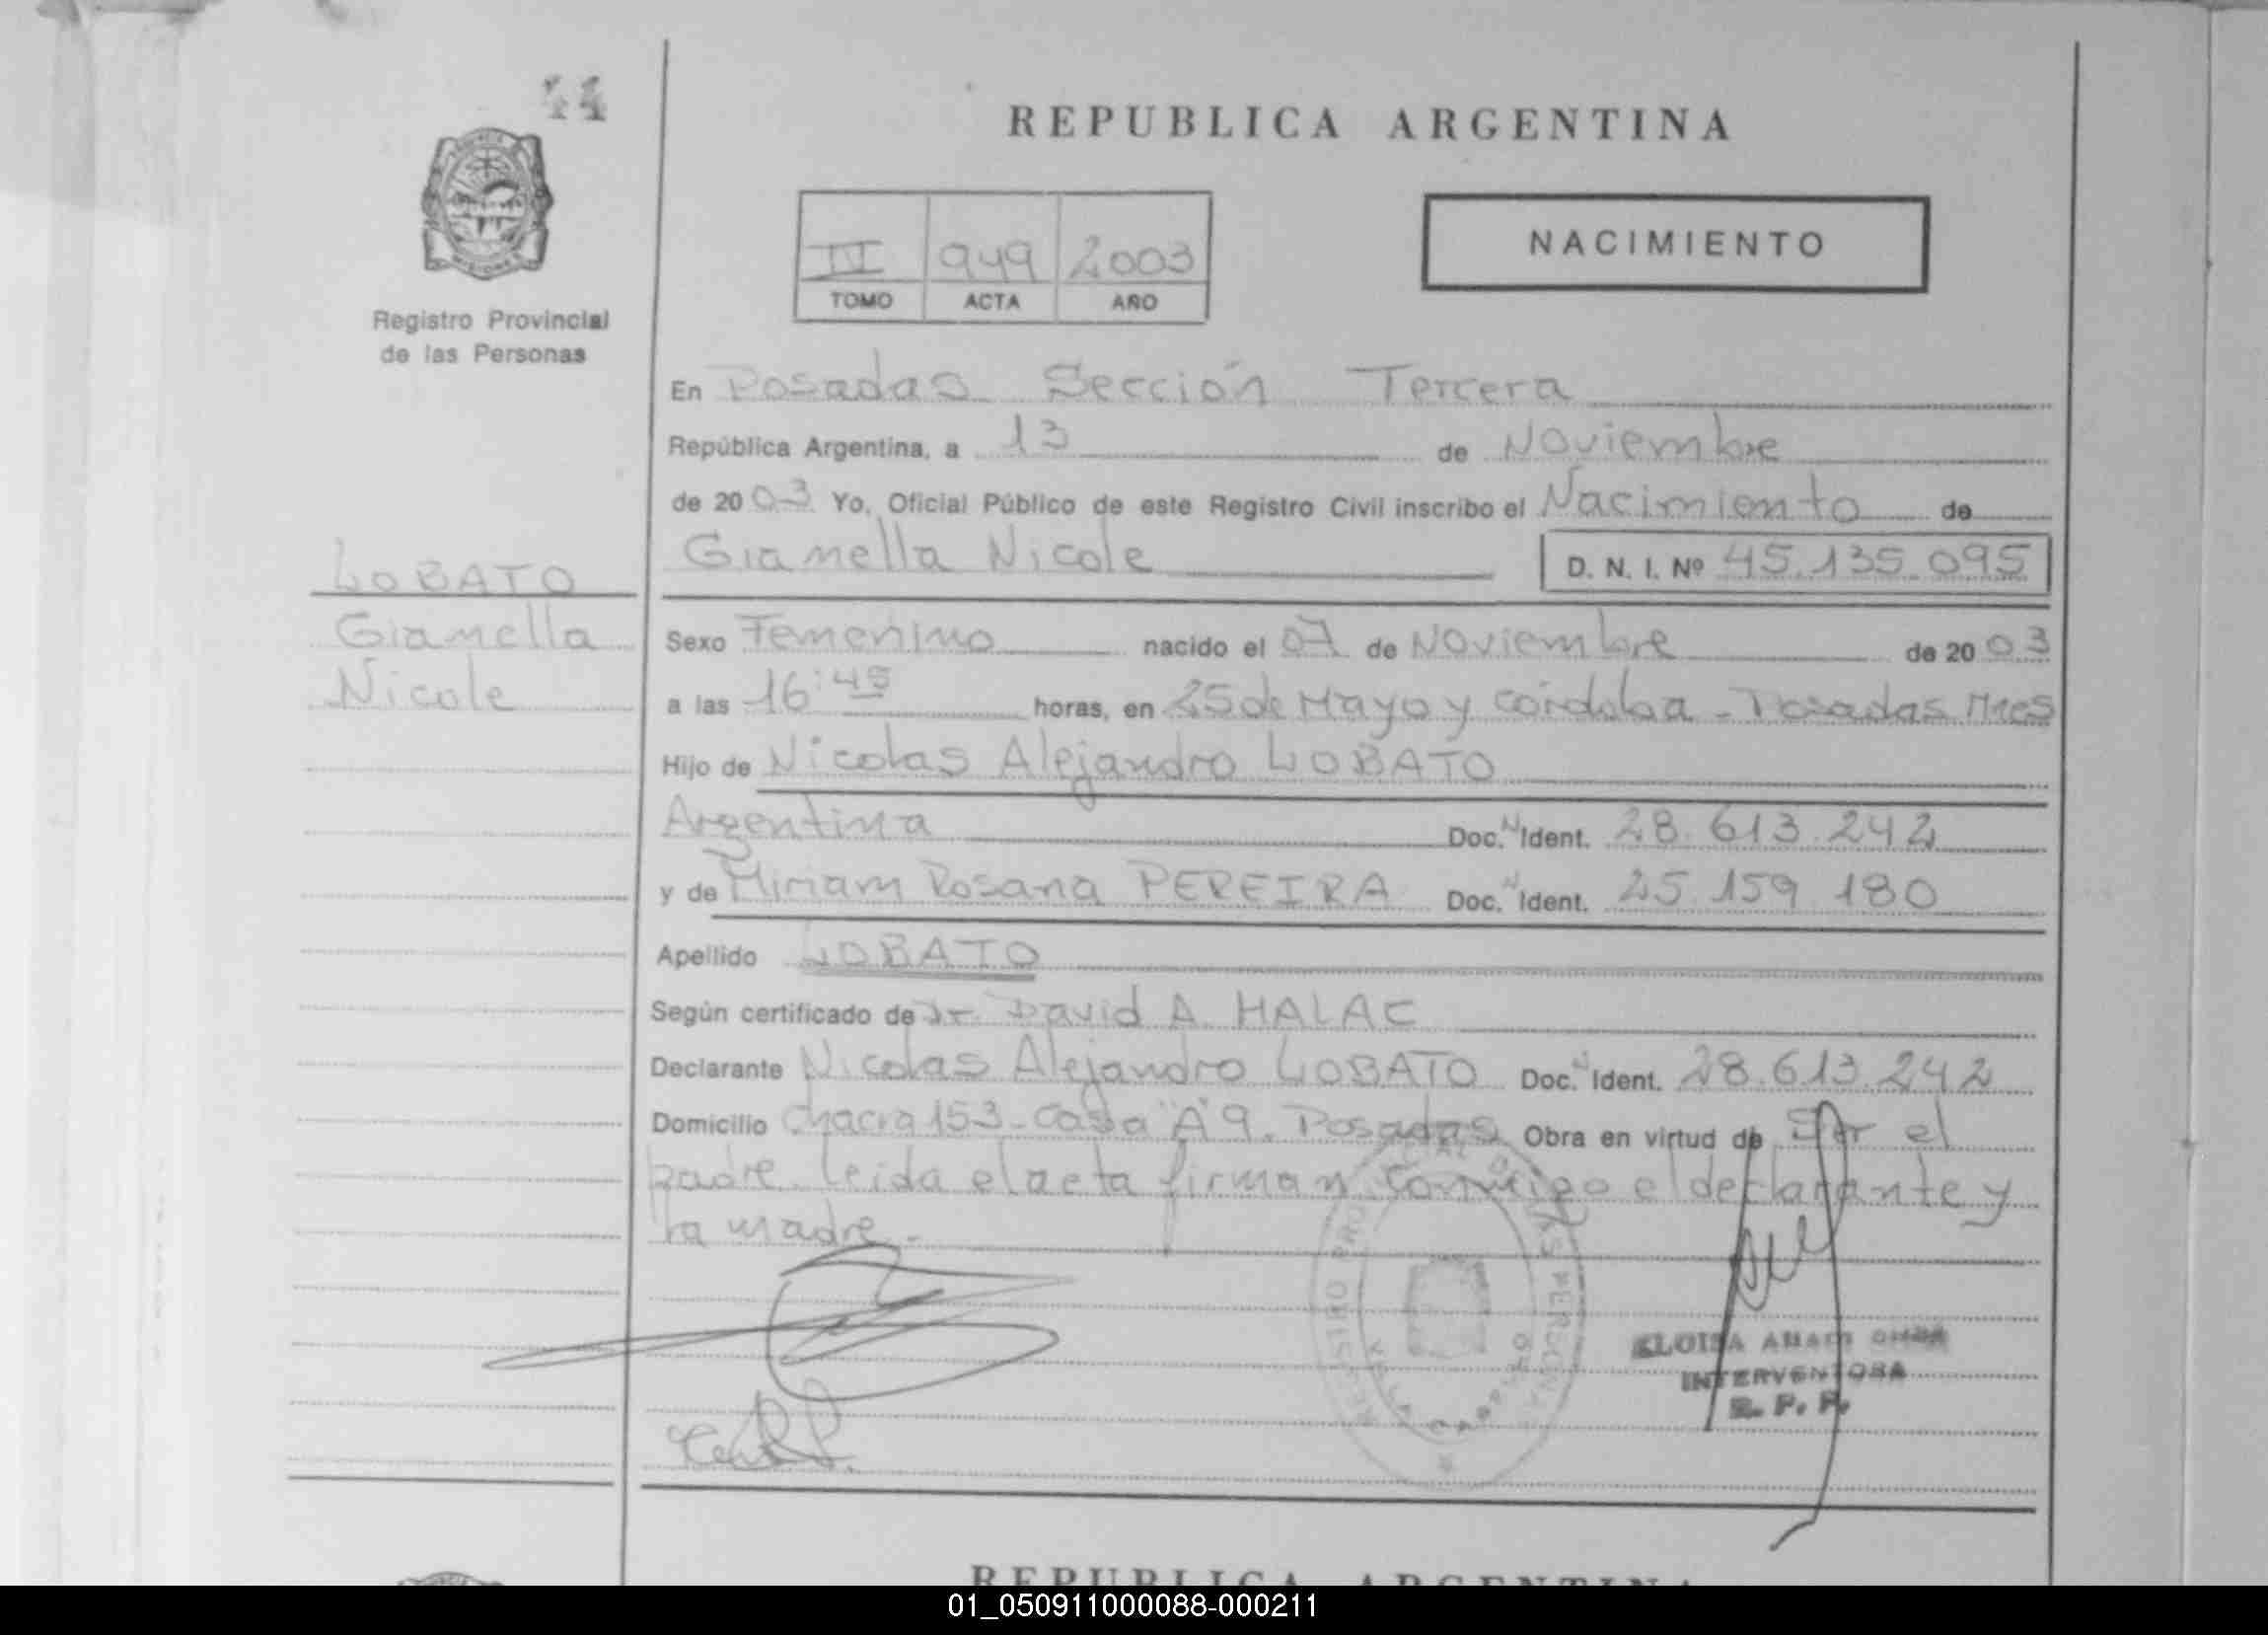 44
REPUBLICA ARGENTINA
NACIMIENTO
949 2003
TOMO ACTA AÑO
Registro Provincial
de las Personas
En Posadas Sección Tercera
República Argentina, a 13 de Noviembre
de 2003 Yo, Oficial Público de este Registro Civil inscribo el Nacimiento de
Gianella Nicole D. N. I. Nº 45.135.095
LOBATO
Gianella
Nicole
Sexo Femenino nacido el 07 de Noviembre de 2003
a las 16:45 horas, en 25 de Mayo y Córdoba - Posadas Mnes
Hijo de Nicolas Alejandro LOBATO
Argentina Doc. N Ident. 28.613.242
y de Miriam Rosana PEREIRA Doc. N Ident. 25.159.180
Apellido LOBATO
Según certificado de Dr. David A. HALAC
Declarante Nicolas Alejandro LOBATO Doc. N Ident. 28.613.242
Domicilio Chacra 153 - Casa "A" 9. Posadas Obra en virtud de Ser el
padre. Leida el acta firman conmigo el declarante y
la madre.-
ELOISA
INTERVENTORA
R. P. P.
REPUBLICA ARGENTINA
01_050911000088-000211